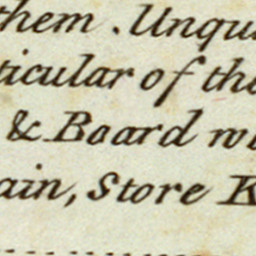 them. Unqu
ticular of the
& Board wi
ain, Store K